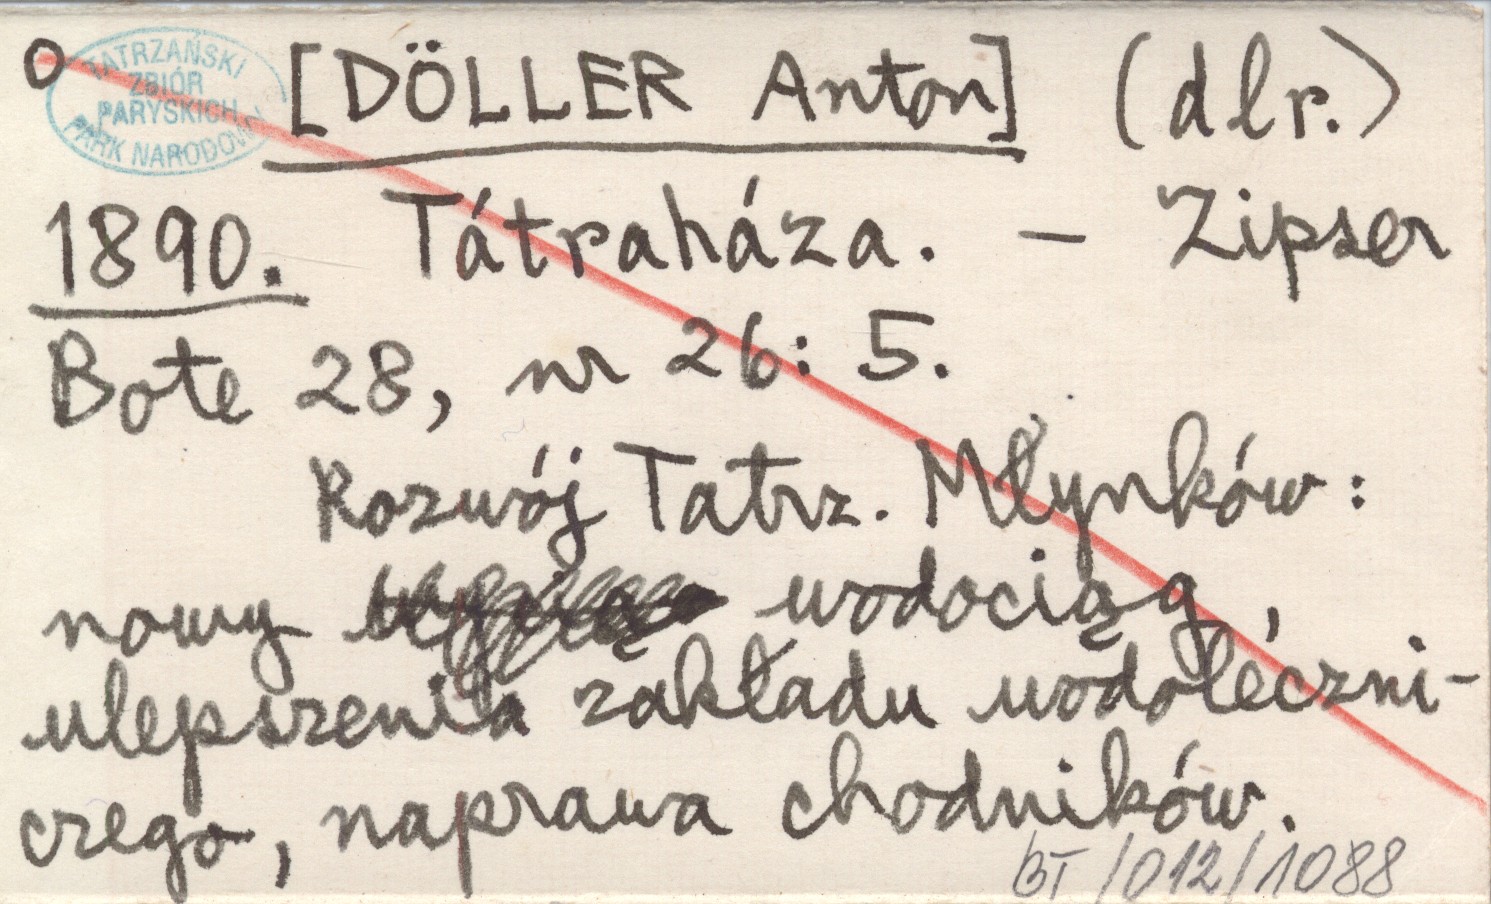 o [DÖLLER Anton] (dlr.)
TATRZAŃSKI
ZBIÓR
PARYSKICH
PARK NARODOWY
1890. Tátraháza. – Zipser
Bote 28, nr 26: 5.
Rozwój Tatrz. Młynków:
nowy wodociąg,
ulepszenia zakładu wodoleczni-
czego, naprawa chodników.
BT/012/1088